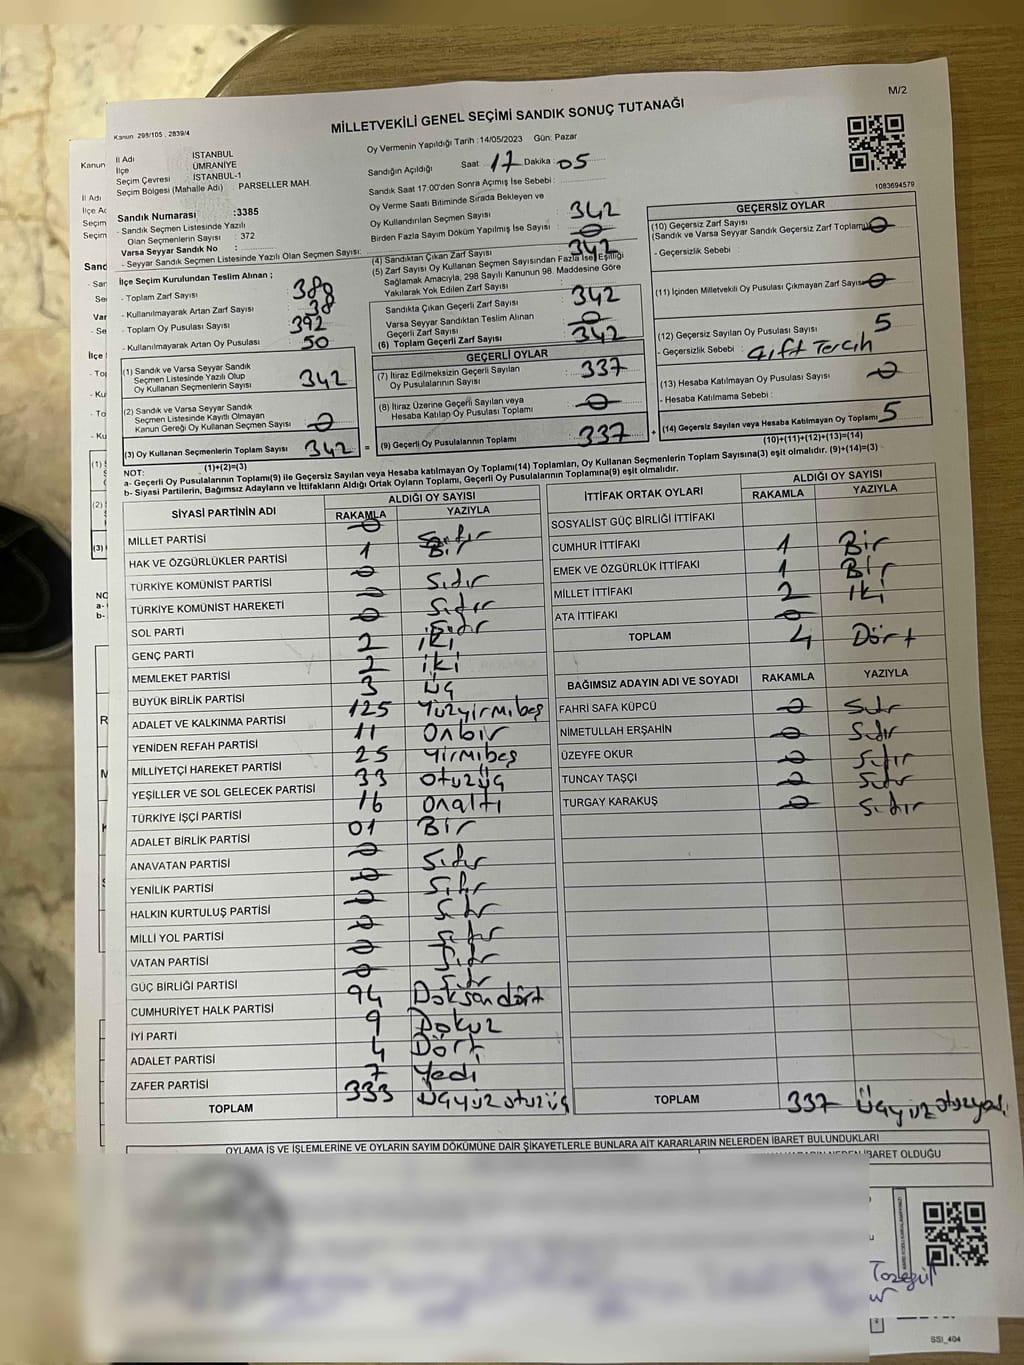 M/2
Kanun 298/105 , 2839/4
MİLLETVEKİLİ GENEL SEÇİMİ SANDIK SONUÇ TUTANAĞI
1083694579
İl Adı İSTANBUL
İlçe ÜMRANİYE
Seçim Çevresi İSTANBUL-1
Seçim Bölgesi (Mahalle Adı) PARSELLER MAH.
Sandık Numarası :3385
- Sandık Seçmen Listesinde Yazılı
Olan Seçmenlerin Sayısı : 372
Varsa Seyyar Sandık No :
- Seyyar Sandık Seçmen Listesinde Yazılı Olan Seçmen Sayısı:
İlçe Seçim Kurulundan Teslim Alınan ;
- Toplam Zarf Sayısı 380
- Kullanılmayarak Artan Zarf Sayısı 38
- Toplam Oy Pusulası Sayısı 392
- Kullanılmayarak Artan Oy Pusulası 50
(1) Sandık ve Varsa Seyyar Sandık
Seçmen Listesinde Yazılı Olup
Oy Kullanan Seçmenlerin Sayısı 342
(2) Sandık ve Varsa Seyyar Sandık
Seçmen Listesinde Kayıtlı Olmayan
Kanun Gereği Oy Kullanan Seçmen Sayısı 0
(3) Oy Kullanan Seçmenlerin Toplam Sayısı 342 =
(1)+(2)=(3)
Oy Vermenin Yapıldığı Tarih :14/05/2023 Gün: Pazar
Sandığın Açıldığı Saat 17 Dakika : 05
Sandık Saat 17:00'den Sonra Açılmış İse Sebebi :
Oy Verme Saati Bitiminde Sırada Bekleyen ve
Oy Kullandırılan Seçmen Sayısı 342
Birden Fazla Sayım Döküm Yapılmış İse Sayısı : 0
(4) Sandıktan Çıkan Zarf Sayısı 342
(5) Zarf Sayısı Oy Kullanan Seçmen Sayısından Fazla İse, Eşitliği
Sağlamak Amacıyla, 298 Sayılı Kanunun 98. Maddesine Göre
Yakılarak Yok Edilen Zarf Sayısı
Sandıkta Çıkan Geçerli Zarf Sayısı 342
Varsa Seyyar Sandıktan Teslim Alınan
Geçerli Zarf Sayısı 0
(6) Toplam Geçerli Zarf Sayısı 342
GEÇERLİ OYLAR
(7) İtiraz Edilmeksizin Geçerli Sayılan
Oy Pusulalarının Sayısı 337
(8) İtiraz Üzerine Geçerli Sayılan veya
Hesaba Katılan Oy Pusulası Toplamı 0
(9) Geçerli Oy Pusulalarının Toplamı 337 +
GEÇERSİZ OYLAR
(10) Geçersiz Zarf Sayısı
(Sandık ve Varsa Seyyar Sandık Geçersiz Zarf Toplamı) 0
- Geçersizlik Sebebi :
(11) İçinden Milletvekili Oy Pusulası Çıkmayan Zarf Sayısı 0
(12) Geçersiz Sayılan Oy Pusulası Sayısı 5
- Geçersizlik Sebebi : Çift Tercih
(13) Hesaba Katılmayan Oy Pusulası Sayısı 0
- Hesaba Katılmama Sebebi :
(14) Geçersiz Sayılan veya Hesaba Katılmayan Oy Toplamı 5
(10)+(11)+(12)+(13)=(14)
NOT:
a- Geçerli Oy Pusulalarının Toplamı(9) ile Geçersiz Sayılan veya Hesaba katılmayan Oy Toplamı(14) Toplamları, Oy Kullanan Seçmenlerin Toplam Sayısına(3) eşit olmalıdır. (9)+(14)=(3)
b- Siyasi Partilerin, Bağımsız Adayların ve İttifakların Aldığı Ortak Oyların Toplamı, Geçerli Oy Pusulalarının Toplamına(9) eşit olmalıdır.
SİYASİ PARTİNİN ADI ALDIĞI OY SAYISI
RAKAMLA YAZIYLA
MİLLET PARTİSİ 0 Sıfır
HAK VE ÖZGÜRLÜKLER PARTİSİ 1 Bir
TÜRKİYE KOMÜNİST PARTİSİ 0 Sıfır
TÜRKİYE KOMÜNİST HAREKETİ 0 Sıfır
SOL PARTİ 0 Sıfır
GENÇ PARTİ 2 iki
MEMLEKET PARTİSİ 2 iki
BÜYÜK BİRLİK PARTİSİ 3 Üç
ADALET VE KALKINMA PARTİSİ 125 Yüzyirmibeş
YENİDEN REFAH PARTİSİ 11 Onbir
MİLLİYETÇİ HAREKET PARTİSİ 25 Yirmibeş
YEŞİLLER VE SOL GELECEK PARTİSİ 33 Otuzüç
TÜRKİYE İŞÇİ PARTİSİ 16 Onaltı
ADALET BİRLİK PARTİSİ 01 Bir
ANAVATAN PARTİSİ 0 Sıfır
YENİLİK PARTİSİ 0 Sıfır
HALKIN KURTULUŞ PARTİSİ 0 Sıfır
MİLLİ YOL PARTİSİ 0 Sıfır
VATAN PARTİSİ 0 Sıfır
GÜÇ BİRLİĞİ PARTİSİ 0 Sıfır
CUMHURİYET HALK PARTİSİ 94 Doksandört
İYİ PARTİ 9 Dokuz
ADALET PARTİSİ 4 Dört
ZAFER PARTİSİ 7 Yedi
TOPLAM 333 Üçyüzotuzüç
İTTİFAK ORTAK OYLARI ALDIĞI OY SAYISI
RAKAMLA YAZIYLA
SOSYALİST GÜÇ BİRLİĞİ İTTİFAKI
CUMHUR İTTİFAKI 1 Bir
EMEK VE ÖZGÜRLÜK İTTİFAKI 1 Bir
MİLLET İTTİFAKI 2 iki
ATA İTTİFAKI 0
TOPLAM 4 Dört
BAĞIMSIZ ADAYIN ADI VE SOYADI RAKAMLA YAZIYLA
FAHRİ SAFA KÜPCÜ 0 Sıfır
NİMETULLAH ERŞAHİN 0 Sıfır
ÜZEYFE OKUR 0 Sıfır
TUNCAY TAŞÇI 0 Sıfır
TURGAY KARAKUŞ 0 Sıfır
TOPLAM 337 Üçyüzotuzyedi
OYLAMA İŞ VE İŞLEMLERİNE VE OYLARIN SAYIM DÖKÜMÜNE DAİR ŞİKAYETLERLE BUNLARA AİT KARARLARIN NELERDEN İBARET BULUNDUKLARI
İBARET OLDUĞU
SSI_404